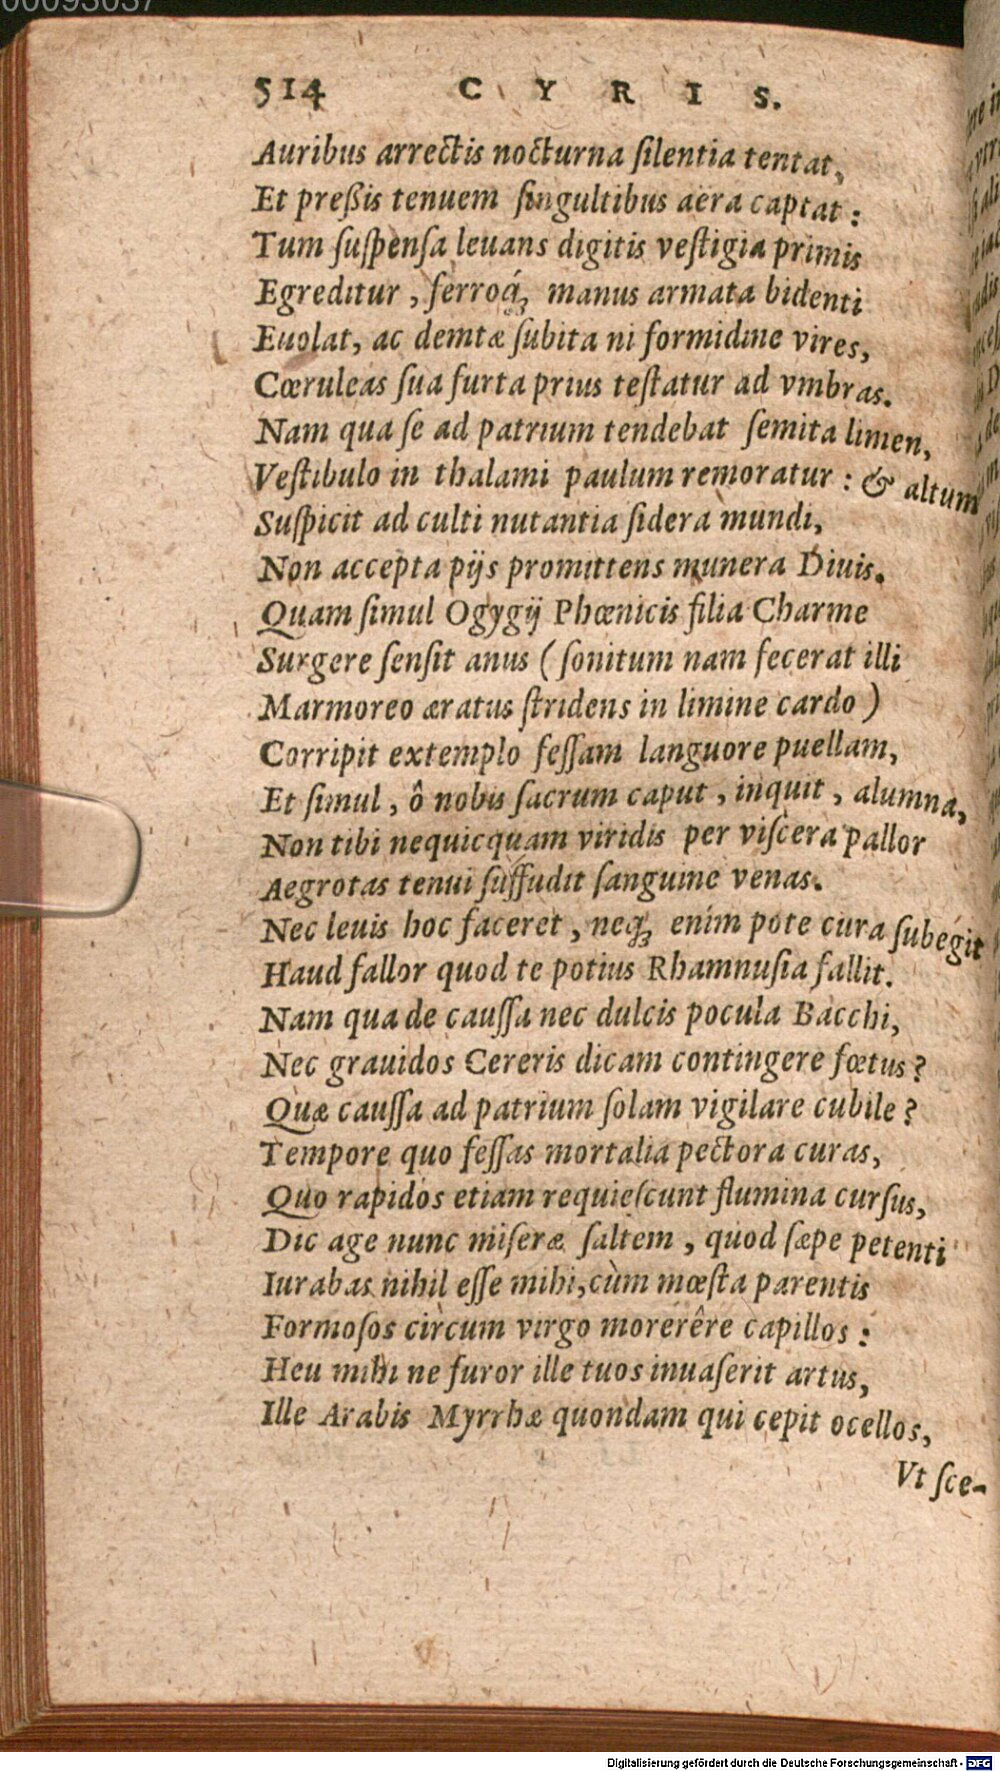 514 CYRIS.
Auribus arrectis nocturna ſilentia tentat,
Et preßis tenuem ſingultibus aëra captat:
Tum ſuſpenſa leuans digitis veſtigia primis
Egreditur, ferroq́ꝫ manus armata bidenti
Euolat, ac demtæ ſubita ni formidine vires,
Cœruleas ſua furta prius teſtatur ad vmbras.
Nam qua ſe ad patrium tendebat ſemita limen,
Veſtibulo in thalami paulum remoratur: & altum
Suſpicit ad culti nutantia ſidera mundi,
Non accepta pijs promittens munera Diuis.
Quam ſimul Ogygij Phœnicis filia Charme
Surgere ſenſit anus (ſonitum nam fecerat illi
Marmoreo æratus ſtridens in limine cardo)
Corripit extemplo feſſam languore puellam,
Et ſimul, ô nobis ſacrum caput, inquit, alumna,
Non tibi nequicquam viridis per viſcera pallor
Aegrotas tenui ſuffudit ſanguine venas.
Nec leuis hoc faceret, neqꝫ enim pote cura ſubégit
Haud fallor quod te potius Rhamnuſia fallit.
Nam qua de cauſſa nec dulcis pocula Bacchi,
Nec grauidos Cereris dicam contingere fœtus?
Quæ cauſſa ad patrium ſolam vigilare cubile?
Tempore quo feſſas mortalia pectora curas,
Quo rapidos etiam requieſcunt flumina curſus,
Dic age nunc miſeræ ſaltem, quod ſæpe petenti
Iurabas nihil eſſe mihi, cùm mœſta parentis
Formoſos circum virgo morerêre capillos:
Heu mihi ne furor ille tuos inuaſerit artus,
Ille Arabis Myrrhæ quondam qui cepit ocellos,
Vt ſce-
Digitalisierung gefördert durch die Deutsche Forschungsgemeinschaft - DFG